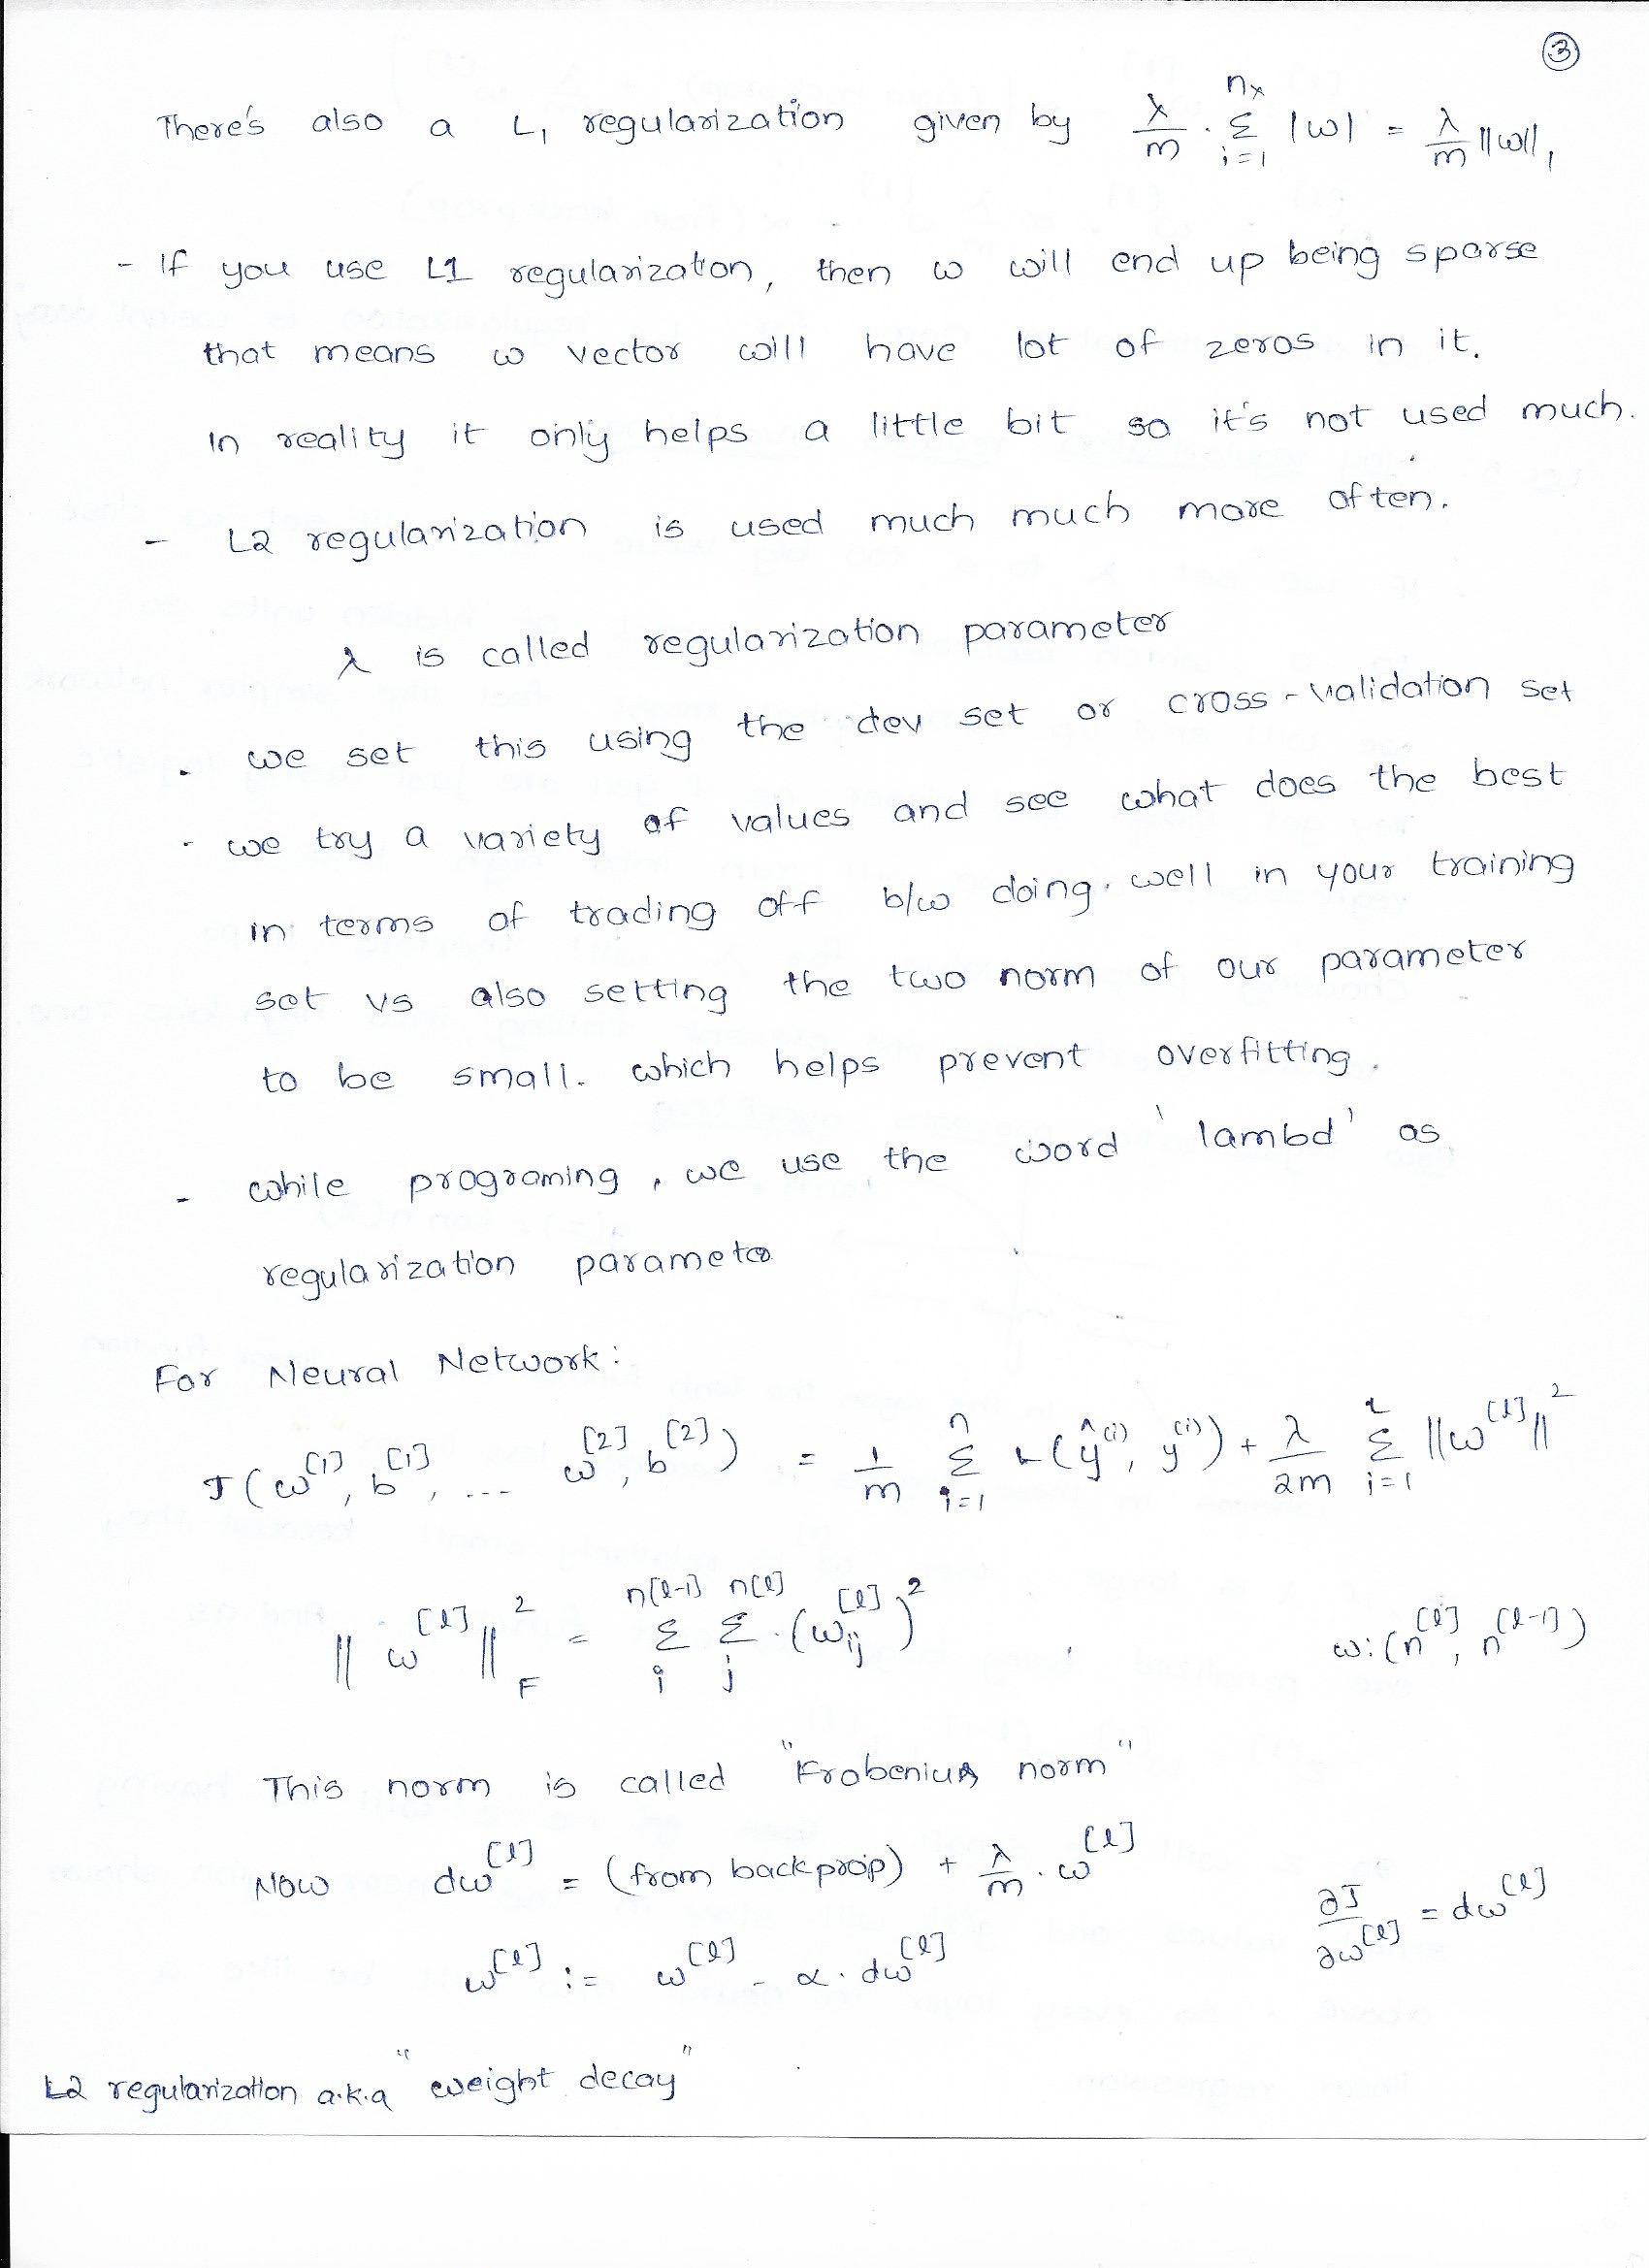 ③
There's also a L₁ regularization given by λ/m . Σ_{i=1}^{nx} |w| = λ/m ||w||₁
- If you use L1 regularizaton, then w will end up being sparse
that means w vector will have lot of zeros in it.
In reality it only helps a little bit so it's not used much.
- L2 regularization is used much much more often.
λ is called regularization parameter
. we set this using the dev set or cross-validation set
. we try a variety of values and see what does the best
in terms of trading off b/w doing well in your training
set vs also setting the two norm of our parameter
to be small. which helps prevent overfitting.
- while programing, we use the word 'lambd' as
regularization parameter
For Neural Network:
J(w^[1], b^[1], ... w^[2], b^[2]) = 1/m Σ_{i=1}^{n} L(ŷ^(i), y^(i)) + λ/2m Σ_{i=1}^{l} ||w^[l]||²
||w^[l]||²_F = Σ_i^{n[l-1]} Σ_j^{n[l]} . (w_ij^[l])² w:(n^[l], n^[l-1])
This norm is called "Frobenius norm"
Now dw^[l] = (from backprop) + λ/m . w^[l]
∂J/∂w^[l] = dw^[l]
w^[l] := w^[l] - α . dw^[l]
L2 regularization a.k.a "weight decay"